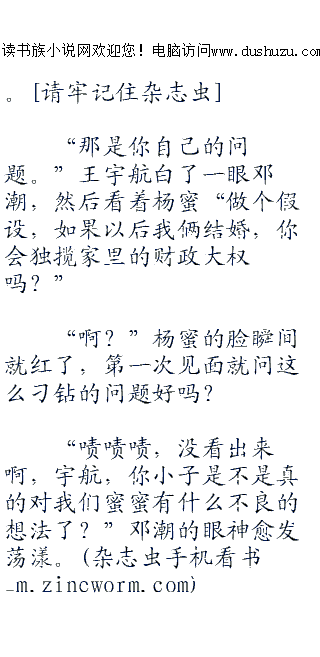 读书族小说网欢迎您！电脑访问www.dushuzu.com
。[请牢记住杂志虫]
“那是你自己的问
题。”王宇航白了一眼邓
潮，然后看着杨蜜“做个假
设，如果以后我俩结婚，你
会独揽家里的财政大权
吗？”
“啊？”杨蜜的脸瞬间
就红了，第一次见面就问这
么刁钻的问题好吗？
“啧啧啧，没看出来
啊，宇航，你小子是不是真
的对我们蜜蜜有什么不良的
想法了？”邓潮的眼神愈发
荡漾。(杂志虫手机看书
-m.zincworm.com)